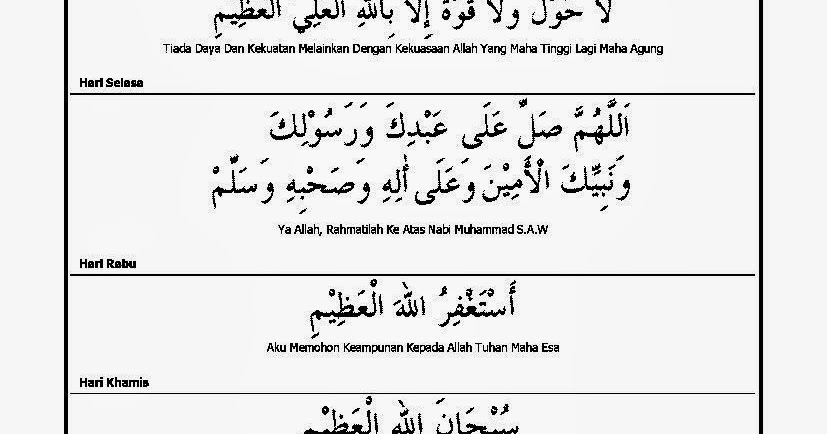 لا حَوْلَ وَلا قُوَّةَ إِلا بِاللهِ الْعَلِيِّ الْعَظِيْمِ
Tiada Daya Dan Kekuatan Melainkan Dengan Kekuasaan Allah Yang Maha Tinggi Lagi Maha Agung
Hari Selasa
اَللَّهُمَّ صَلِّ عَلَى عَبْدِكَ وَرَسُوْلِكَ
وَنَبِيِّكَ الْأَمِيْنَ وَعَلَى أٰلِهِ وَصَحْبِهِ وَسَلِّمْ
Ya Allah, Rahmatilah Ke Atas Nabi Muhammad S.A.W
Hari Rabu
أَسْتَغْفِرُ اللهَ الْعَظِيْمِ
Aku Memohon Keampunan Kepada Allah Tuhan Maha Esa
Hari Khamis
سُبْحَانَ اللهِ الْعَظِيْمِ